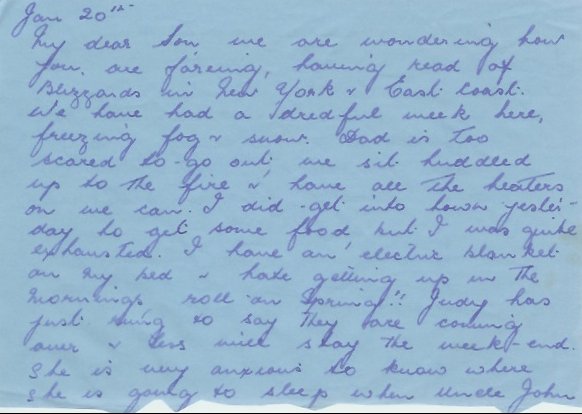 Jan 20th
My dear Son, we are wondering how
you are fareing, having read of
Blizzards in New York & East Coast.
We have had a dredful week here,
freezing fog & snow. Dad is too
scared to go out, we sit huddled
up to the fire & have all the heaters
on we can. I did get into town yester-
day to get some food but I was quite
exhausted. I have an electric blanket
on my bed & hate getting up in the
mornings roll on Spring!! Judy has
just rung to say they are coming
over & Tess will stay the week-end.
She is very anxious to know where
she is going to sleep when Uncle John